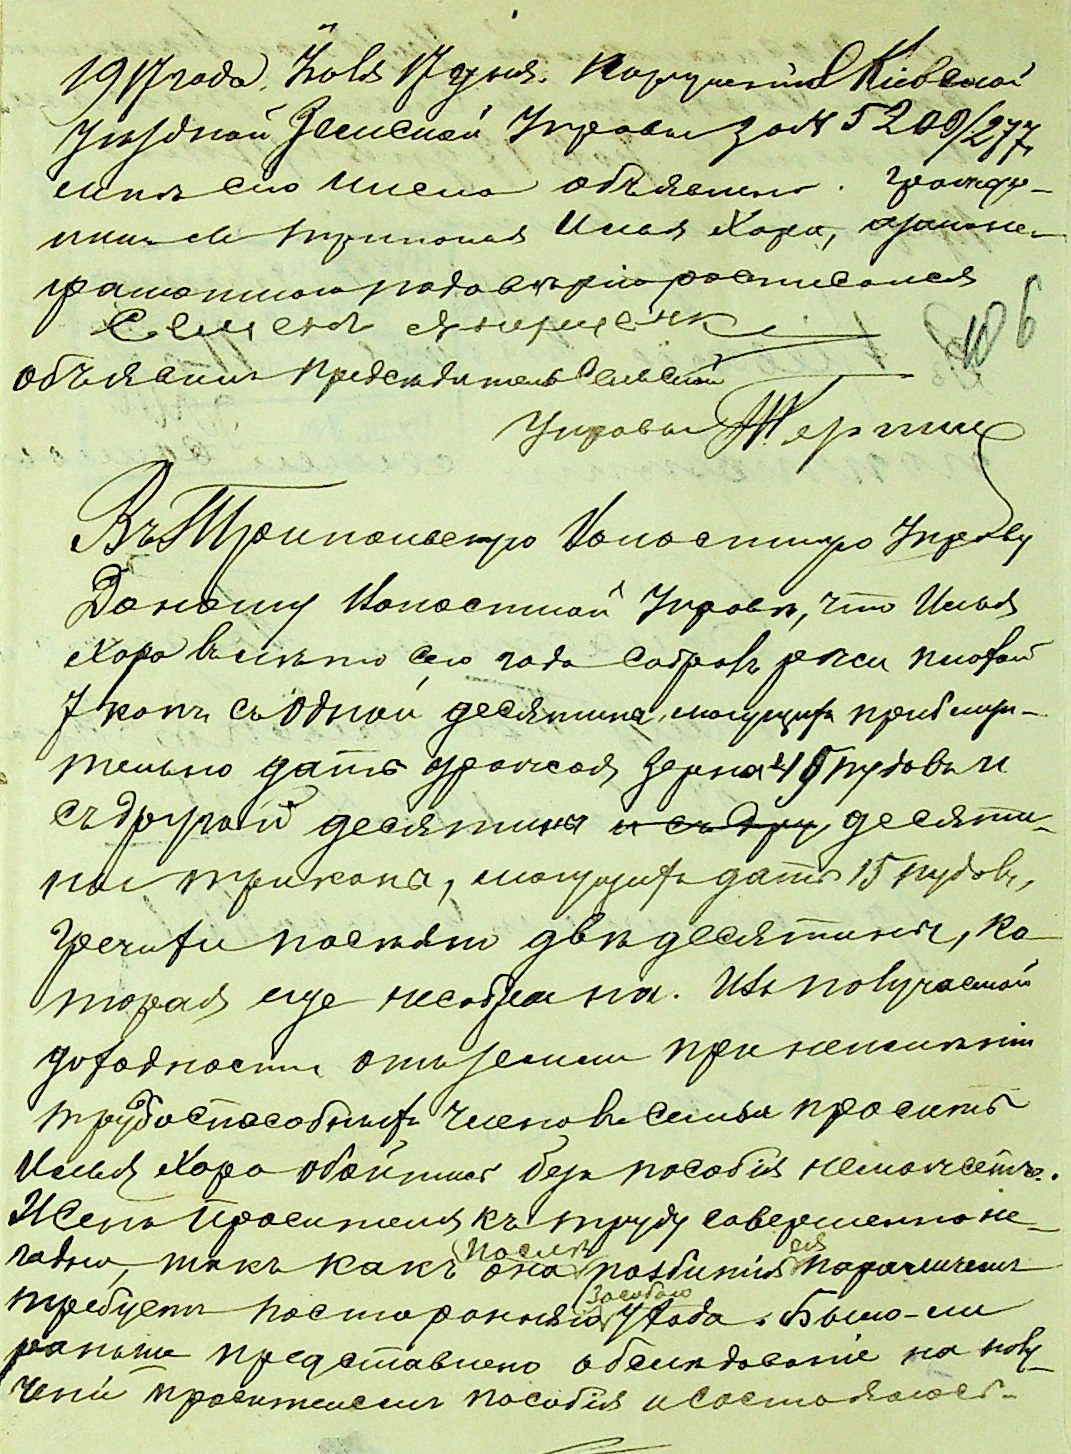 1917 года Іюля 17 дня. Порученіе Кіевской
Уѣздной Земской Управы за № 5209/277,
мнѣ сего числа объявлено. Гражда-
нинъ с. Триполья Илья Хоро, а за не-
грамотного по довѣрію росписался
Семенъ
объявилъ Председатель Сельской
Управы
Въ Трипольскую Волостную Управу
Доношу Волостной Управѣ, что Илья
Хоро въ лѣто сего года собралъ ржи плохой
7 копъ съ одной десятины, могущихъ приблизи-
тельно дать урожая зерна 45 пудовъ и
съ другой десятины и съ дру десяти-
ны три копы, могущихъ дать 15 пудовъ,
Гречихи посѣяно двѣ десятины, ко-
торая еще не собрана. Изъ получаемой
доходности отъ земли при неимѣніи
трудоспособныхъ членовъ семьи проситъ
Илья Хоро обойтись безъ пособія не можетъ.
Жена Просителя къ труду совершенно не-
годна, такъ какъ она послѣ разбитія ея параличемъ
требуетъ посторонняго за собою ухода. Было-ли
раньше представлено обслѣдованіе на полу-
ченіе просителемъ пособія и состоялось-